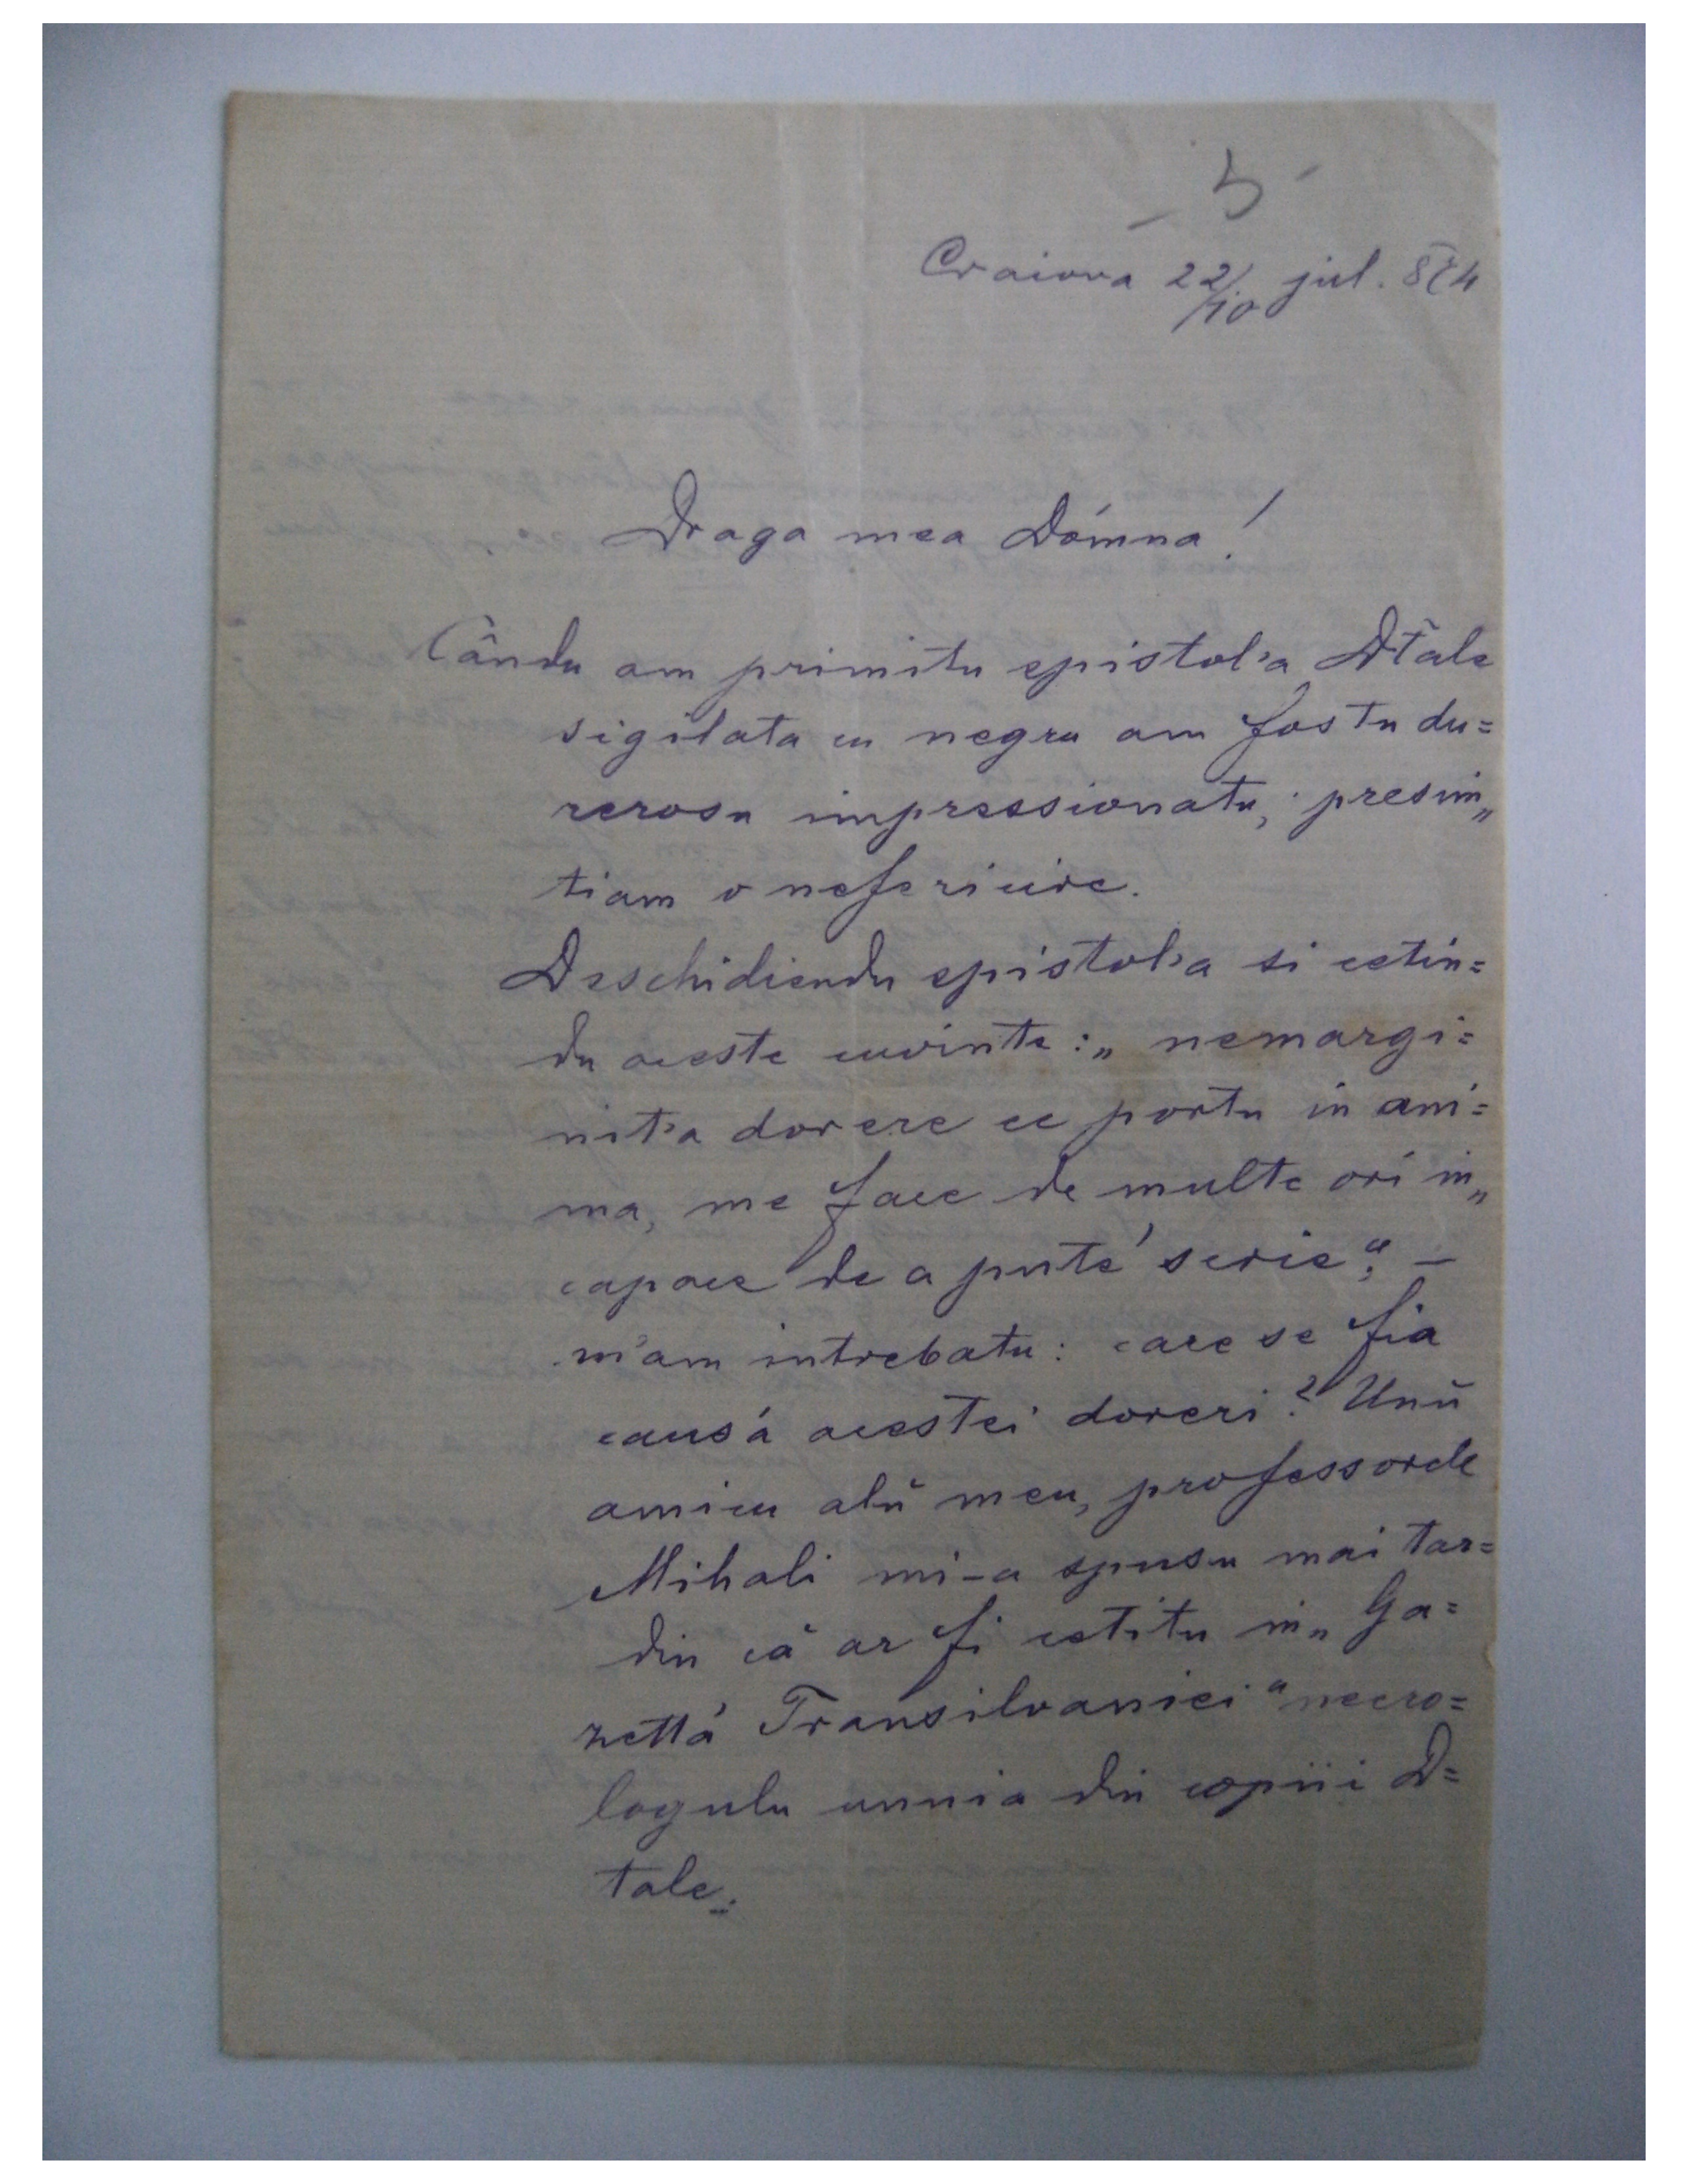 - 5 -
Craiova 22/10 jul. 874
Draga mea Dómna!
Cându am primitu epistol'a Dtale
sigilata cu negru am fostu du=
rerosu impressionatu, presim„
tiam o nefericire.
Deschidiendu epistol'a si cetin=
du aceste cuvinte: „nemargi=
nit'a dorere ce portu in ani=
ma, me face de multe ori in„
capace de a puté scrie“; —
m'am intrebatu: care se fia
causá acestei doreri? Unŭ
amicu alŭ meu, professorele
Mihali mi-a spusu mai tar=
din că ar fi cetitu in „Ga=
zettá Transilvaniei“ necro=
logulu unuia din copiii D=
tale.